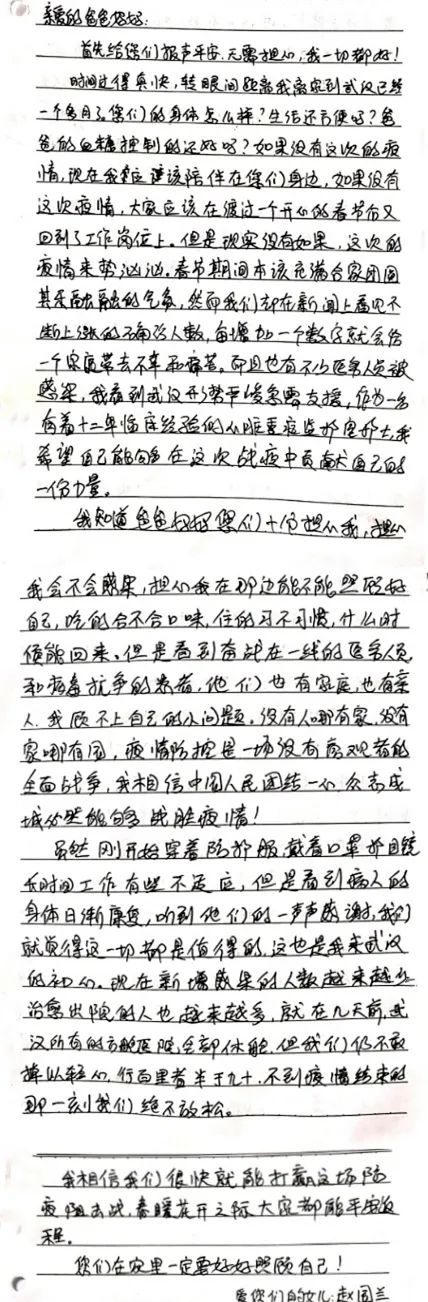 亲爱的爸爸妈好:
首先给您们报声平安,无需担心,我一切都好!
时间过得真快,转眼间距离我离家到武汉已然
一个多月了。您们的身体怎么样?生活还方便吗?爸
爸的血糖控制的还好吗?如果没有这次的疫
情,现在我应该陪伴在您们身边,如果没有
这次疫情,大家应该在渡过一个开心的春节后又
回到了工作岗位上。但是现实没有如果,这次的
疫情来势汹汹。春节期间本该充满合家团圆
其乐融融的气氛,然而我们却在新闻上看见不
断上涨的确诊人数,每增加一个数字就会给
一个家庭带去不幸和痛苦。而且也有不少医务人员被
感染,我看到武汉形势严峻急需支援,作为一名
有着十二年临床经验的心脏重症监护室护士,我
希望自己能够在这次战疫中贡献自己的
一份力量。
我知道爸爸妈妈您们十分担心我,担心
我会不会感染,担心我在那边能不能照顾好
自己,吃的合不合口味,住的习不习惯,什么时
候能回来。但是看到奋战在一线的医务人员
和病毒抗争的患者,他们也有家庭,也有亲
人,我顾不上自己的小问题。没有人哪有家,没有
家哪有国,疫情防控是一场没有旁观者的
全面战争,我相信中国人民团结一心,众志成
城必然能够战胜疫情!
虽然刚开始穿着防护服,戴着口罩护目镜
长时间工作有些不适应,但是看到病人的
身体日渐康复,听到他们的一声声感谢,我们
就觉得这一切都是值得的,这也是我来武汉
的初心。现在新增感染的人数越来越少
治愈出院的人也越来越多,就在几天前,武
汉所有的方舱医院全部休舱,但我们仍不敢
掉以轻心,行百里者半于九十,不到疫情结束的
那一刻我们绝不放松。
我相信我们很快就能打赢这场防
疫阻击战,春暖花开之际大家都能平安返
程。
您们在家里一定要好好照顾自己!
爱您们的女儿:赵国兰